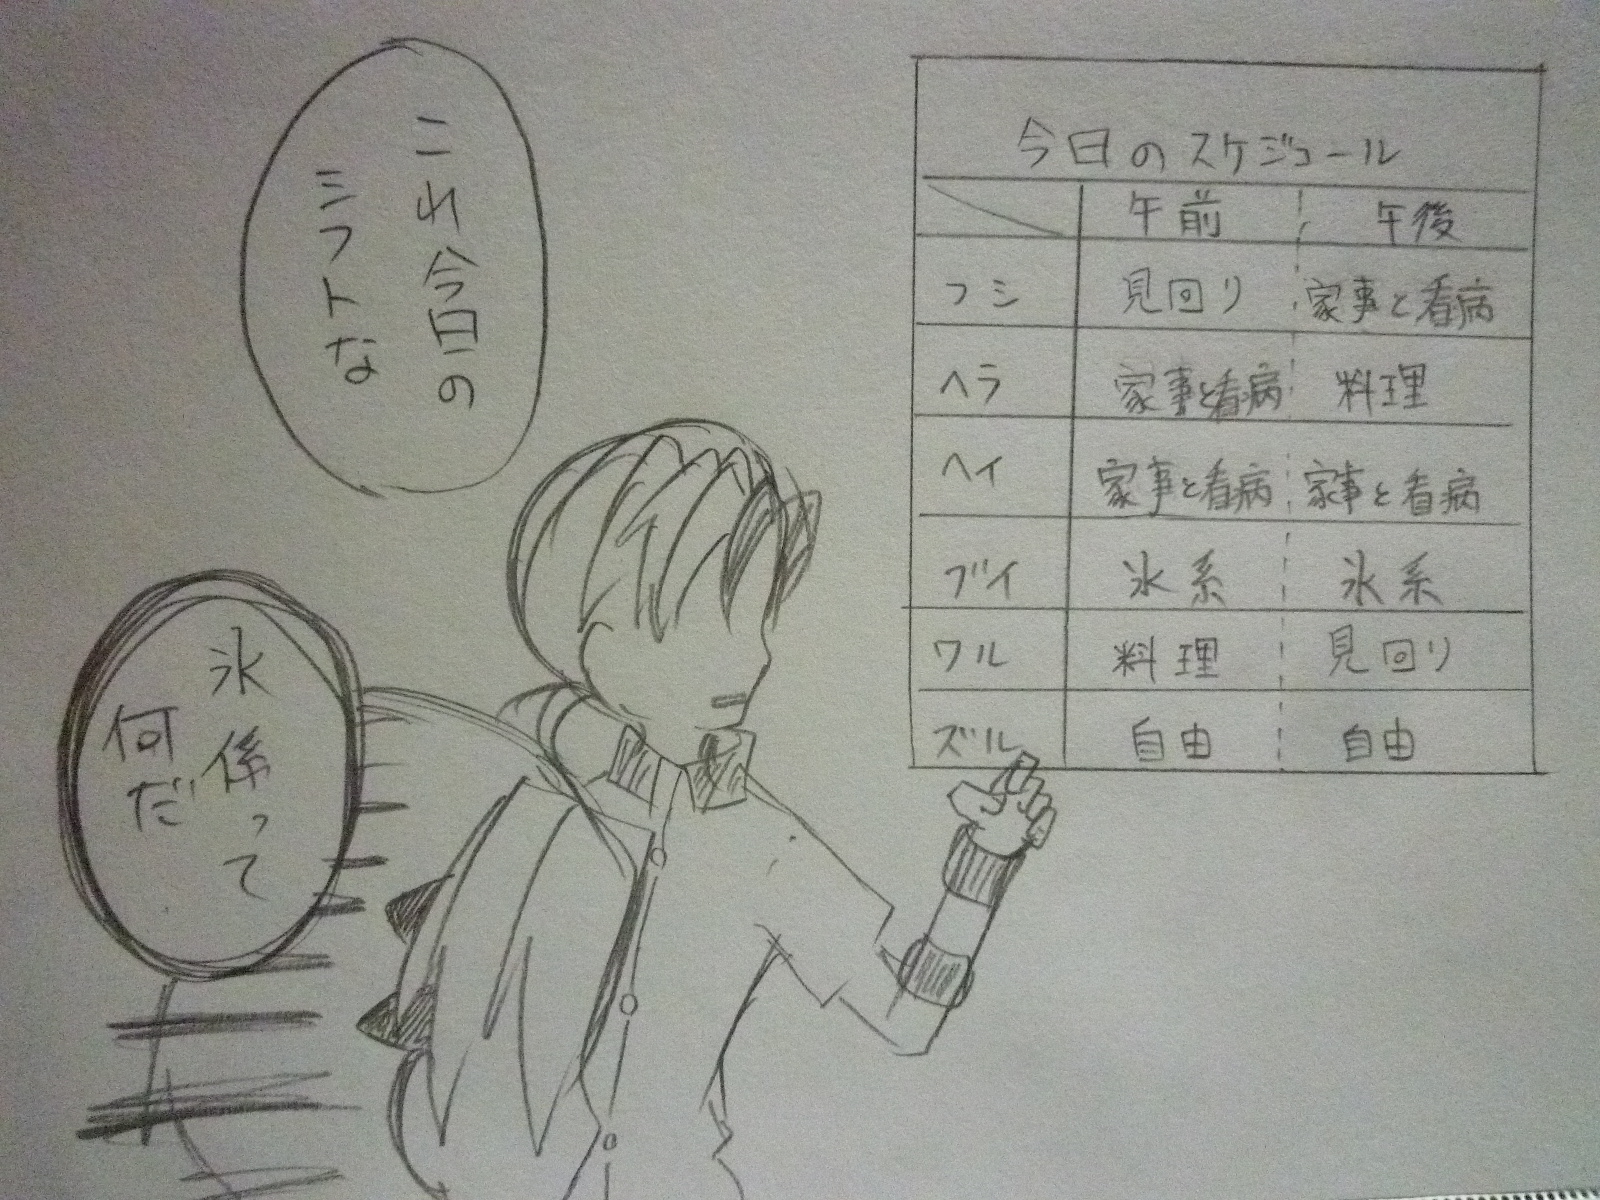 これ今日の
シフトな
今日のスケジュール
午前 午後
フシ 見回り 家事と看病
ヘラ 家事と看病 料理
ヘイ 家事と看病 家事と看病
ブイ 氷系 氷系
ワル 料理 見回り
ズル 自由 自由
氷係って
何だ